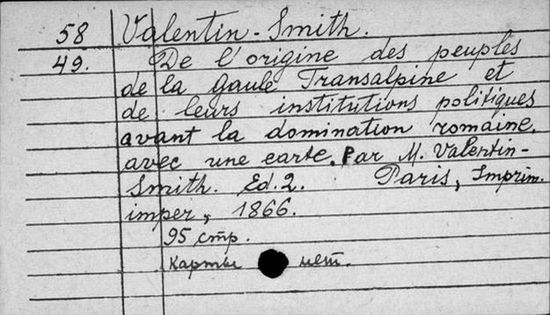 58 Valentin-Smith.
49. De l'origine des peuples
de la Gaule Transalpine et
de leurs institutions politiques
avant la domination romaine,
avec une carte. Par M. Valentin-
Smith. Ed. 2. Paris, Imprim.
imper, 1866.
95 стр.
карты нет.